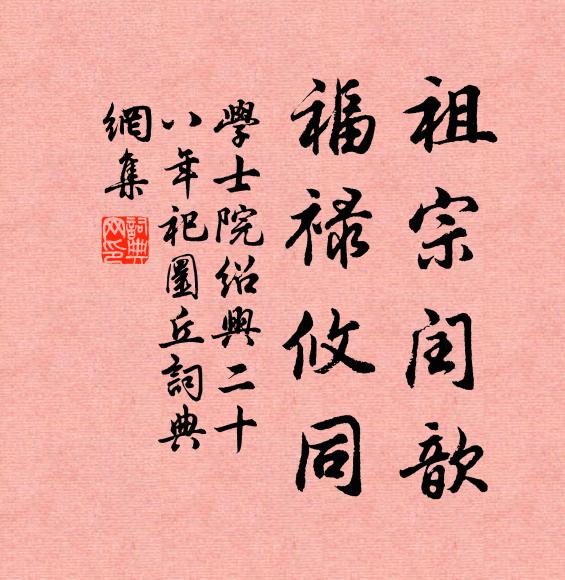 祖宗闰歆
福禄攸同
學士院紹興二十
八年祀圜丘詞典
網集
詞典
网印